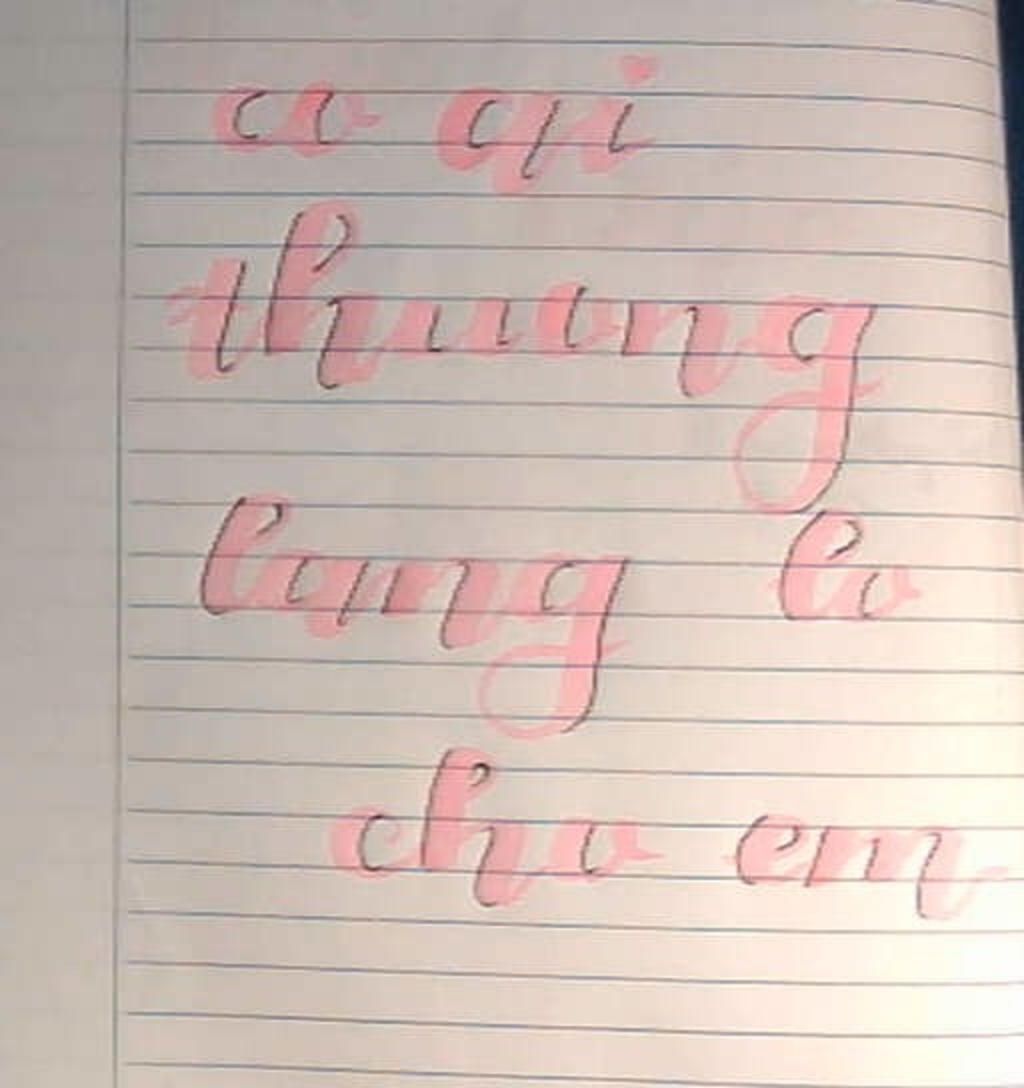 co ai
thuong
lang lo
cho em